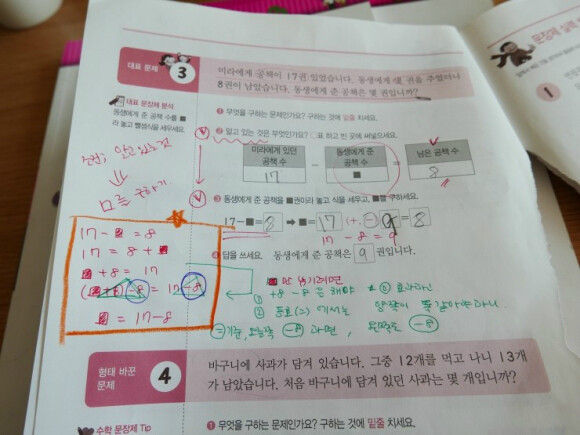 대표 문제 3
미라에게 공책이 17권 있었습니다. 동생에게 몇 권을 주었더니
8권이 남았습니다. 동생에게 준 공책은 몇 권입니까?
대표 문장제 분석
동생에게 준 공책 수를 ■
라 놓고 뺄셈식을 세우세요.
① 무엇을 구하는 문제인가요? 구하는 것에 밑줄 치세요.
② 알고 있는 것은 무엇인가요? ○표 하고 빈 곳에 써넣으세요.
미라에게 있던 공책 수 - 동생에게 준 공책 수 = 남은 공책 수
17 ■ 8
알고 있는 것
구하기
③ 동생에게 준 공책을 ■권이라 놓고 식을 세우고, ■를 구하세요.
17-■=8 ➡ ■=17 (+, -) 9=8
17 - 8 = 9
답을 쓰세요. 동생에게 준 공책은 9 권입니다.
17 - ■ = 8
17 = 8 + ■
■ + 8 = 17
(■+8) -8 = 17 -8
■ = 17-8
■만 남기려면
① +8 -8 을 해야
② 등호(=)에서는 양쪽이 똑같아야 하니
-8 하면, -8
형태 바꾼 문제 4
바구니에 사과가 담겨 있습니다. 그중 12개를 먹고 나니 13개
가 남았습니다. 처음 바구니에 담겨 있던 사과는 몇 개입니까?
수학 문장제 Tip
① 무엇을 구하는 문제인가요? 구하는 것에 밑줄 치세요.
문장제 실력
1